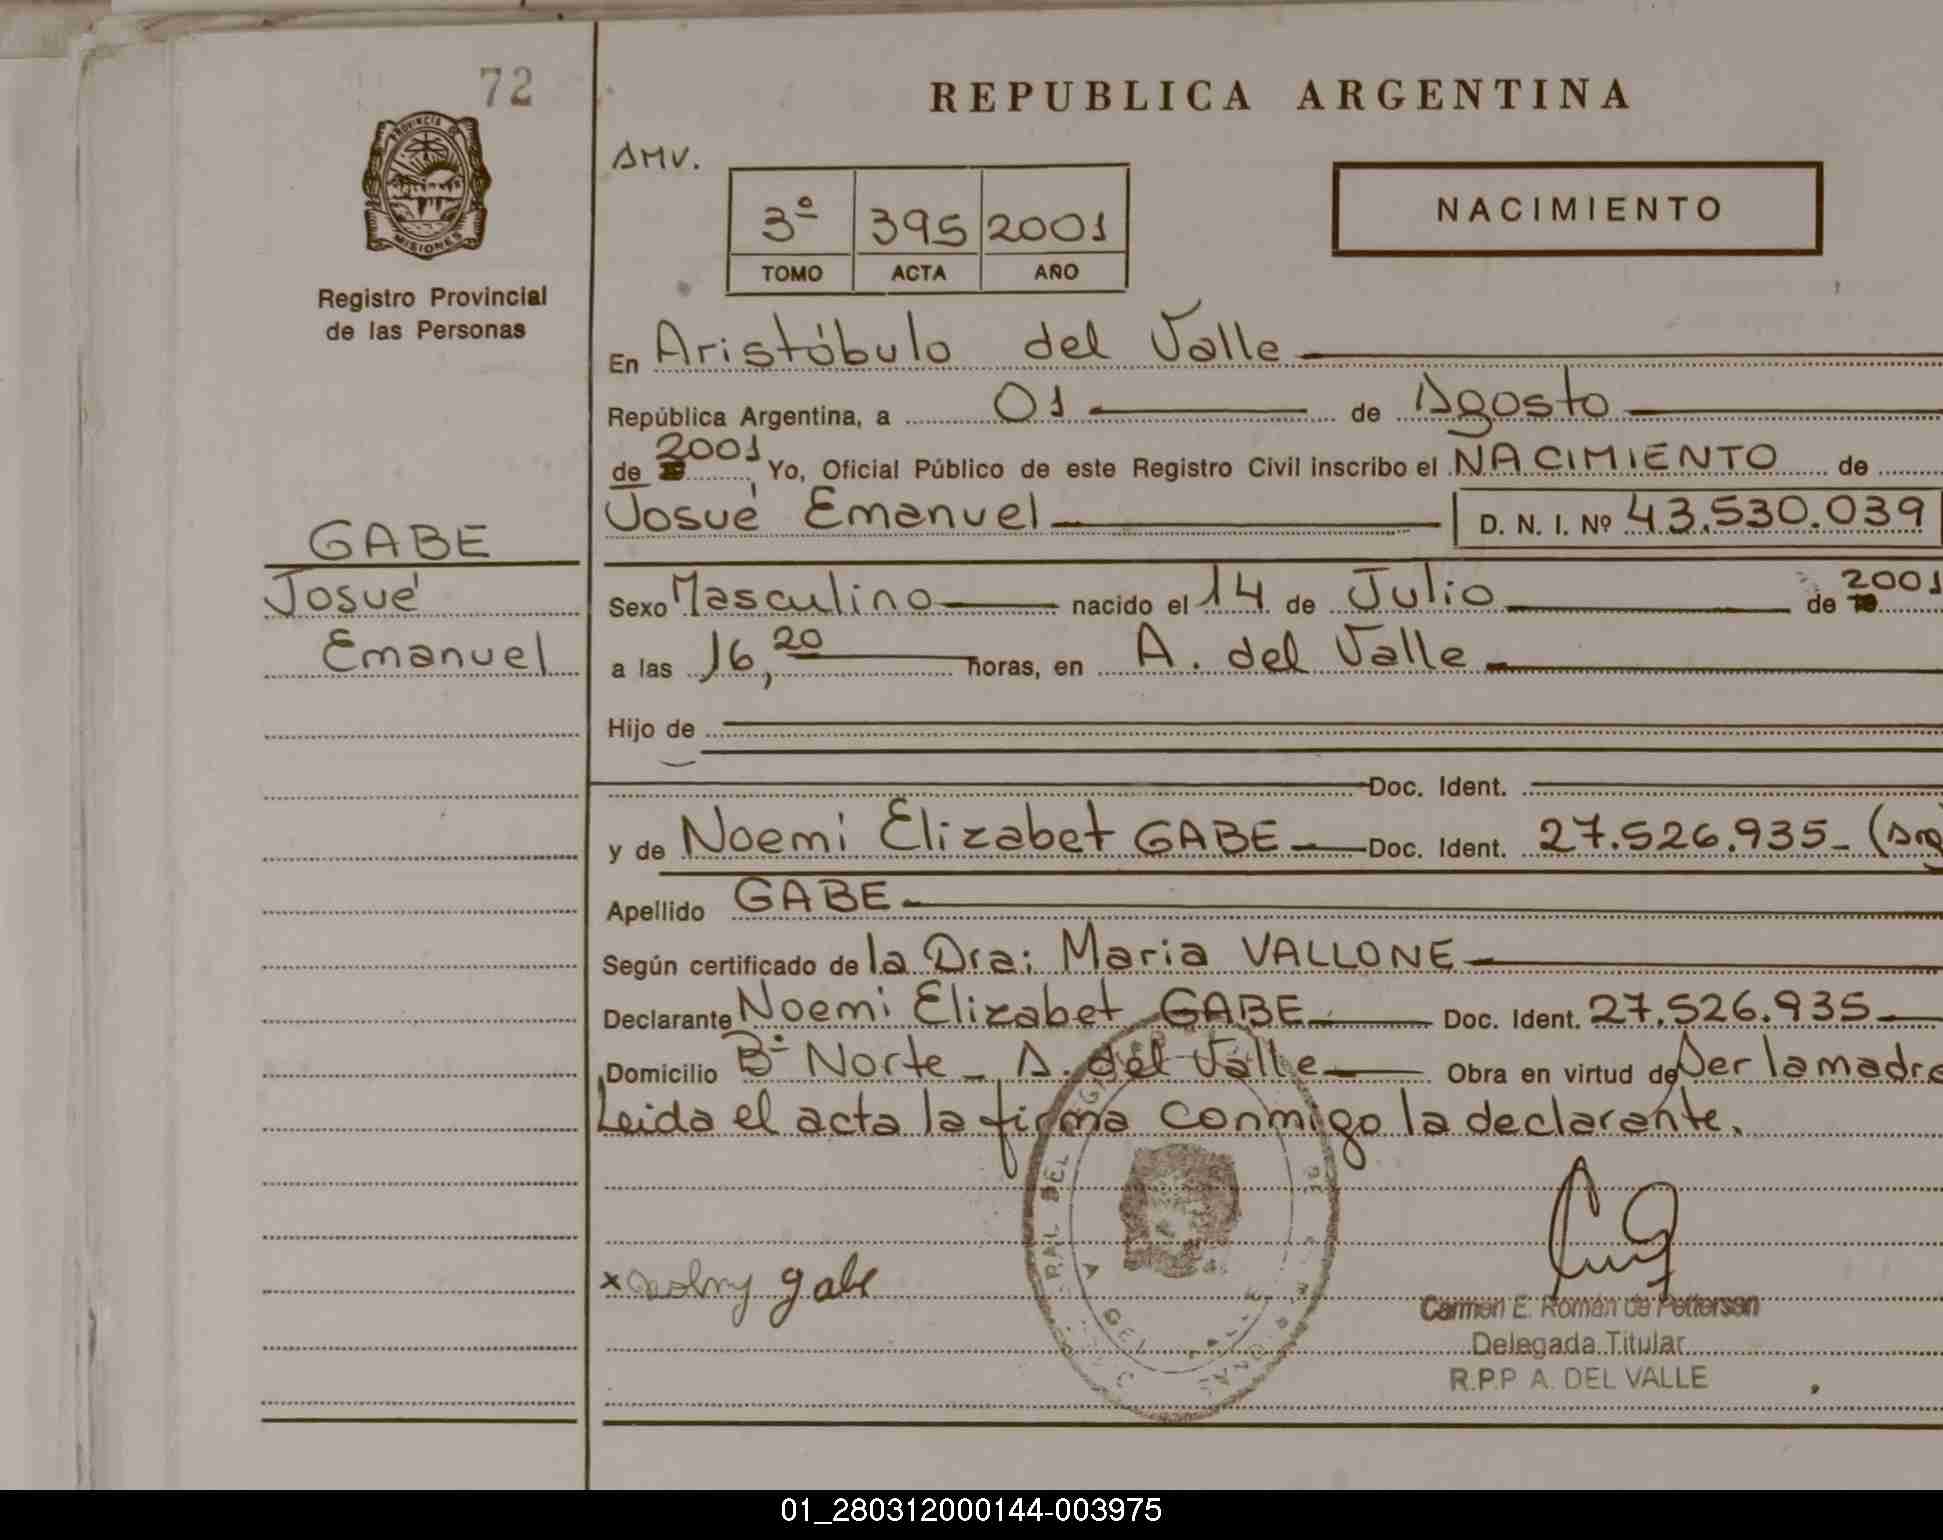 72
REPUBLICA ARGENTINA
PROVINCIA DE
MISIONES
AMV.
3º 395 2001
TOMO ACTA AÑO
NACIMIENTO
Registro Provincial
de las Personas
En Aristóbulo del Valle
República Argentina, a 01 de Agosto
de 2001 Yo, Oficial Público de este Registro Civil inscribo el NACIMIENTO de
Josué Emanuel D. N. I. Nº 43.530.039
GABE
Josué
Emanuel
Sexo Masculino nacido el 14 de Julio de 2001
a las 16,20 horas, en A. del Valle
Hijo de
Doc. Ident.
y de Noemi Elizabet GABE Doc. Ident. 27.526.935 - (Arg
Apellido GABE
Según certificado de la Dra: Maria VALLONE
Declarante Noemi Elizabet GABE Doc. Ident. 27.526.935
Domicilio Bº Norte - A. del Valle Obra en virtud de Ser la madre
Leida el acta la firma conmigo la declarante.
x gabe
Carmen E. Román de Petterson
Delegada Titular
R.P.P A. DEL VALLE
01_280312000144-003975